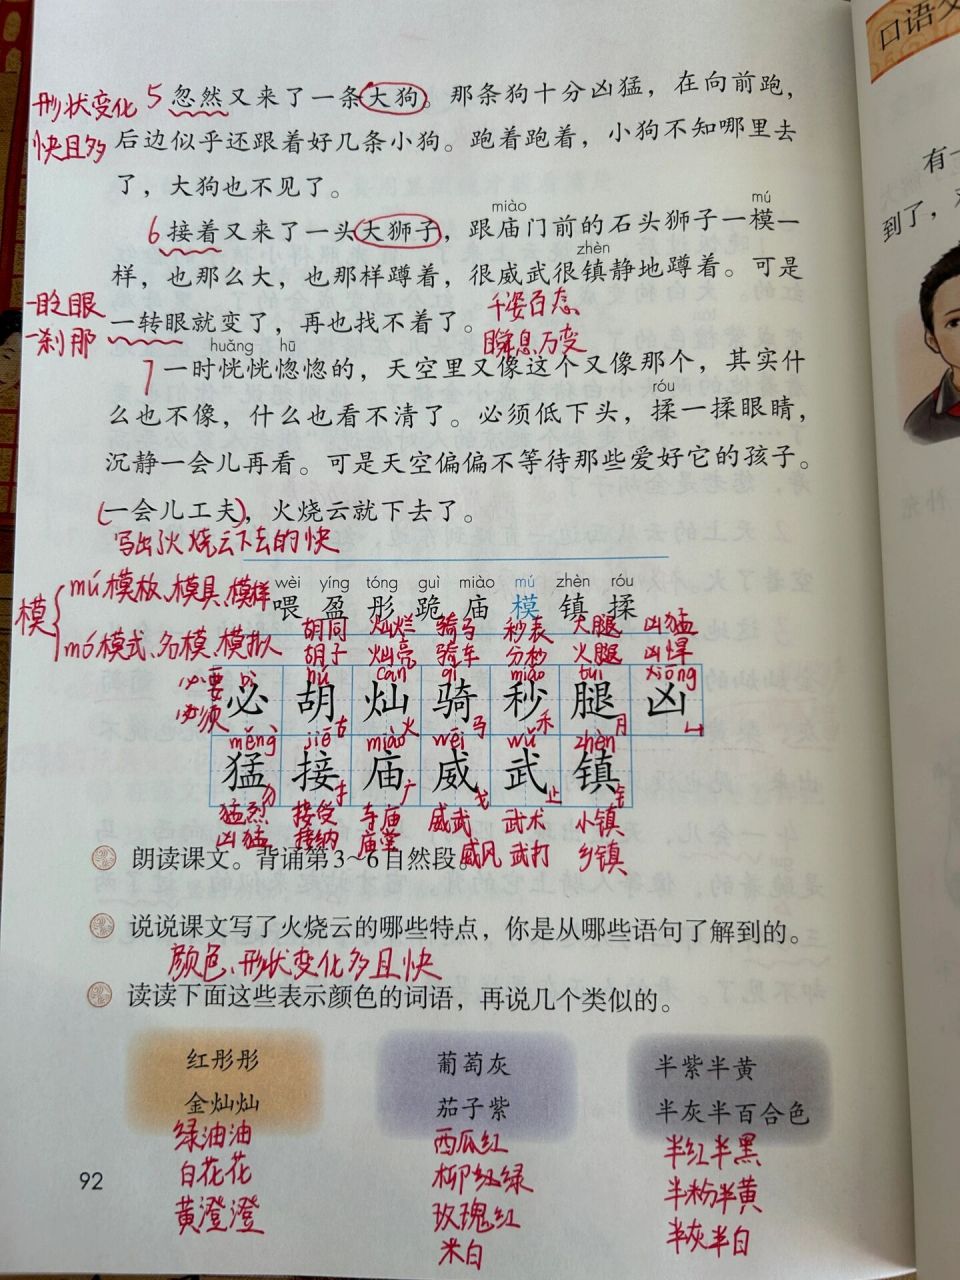 口语交
形状变化 5 忽然又来了一条大狗。那条狗十分凶猛，在向前跑，
快且多 后边似乎还跟着好几条小狗。跑着跑着，小狗不知哪里去
了，大狗也不见了。
miào mú
6 接着又来了一头大狮子，跟庙门前的石头狮子一模一
zhèn
样，也那么大，也那样蹲着，很威武很镇静地蹲着。可是
一眨眼 一转眼就变了，再也找不着了。 千姿百态、
一刹那 瞬息万变
huǎng hū
7 一时恍恍惚惚的，天空里又像这个又像那个，其实什
róu
么也不像，什么也看不清了。必须低下头，揉一揉眼睛，
沉静一会儿再看。可是天空偏偏不等待那些爱好它的孩子。
(一会儿工夫)，火烧云就下去了。
写出了火烧云下去的快
wèi yíng tóng guì miào mú zhèn róu
喂 盈 彤 跪 庙 模 镇 揉
模 mú 模板、模具、模样
mó 模式、名模、模拟
胡同 灿烂 骑马 秒表 大腿 凶猛
胡子 灿亮 骑车 分秒 火腿 凶悍
必要 bì hú càn qí miǎo tuǐ xiōng
必须 必 胡 灿 骑 秒 腿 凶
古 火 马 禾 月 凵
měng jiē miào wēi wǔ zhèn
猛 接 庙 威 武 镇
犭 扌 广 戈 止 钅
猛烈 接受 寺庙 威武 武术 小镇
凶猛 接纳 庙堂 威风 武打 乡镇
朗读课文。背诵第3~6自然段。
说说课文写了火烧云的哪些特点，你是从哪些语句了解到的。
颜色、形状变化多且快
读读下面这些表示颜色的词语，再说几个类似的。
红彤彤 葡萄灰 半紫半黄
金灿灿 茄子紫 半灰半百合色
绿油油 西瓜红 半红半黑
白花花 柳红绿 半粉半黄
黄澄澄 玫瑰红 半灰半白
米白
92
有一
到了，